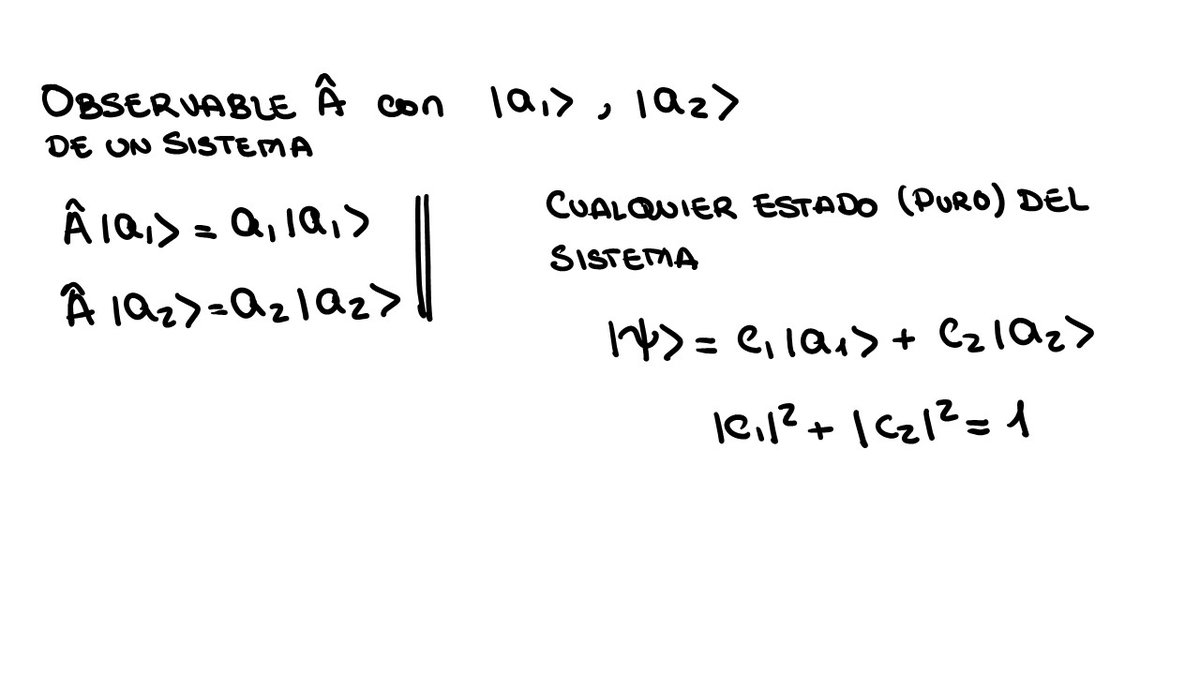 OBSERVABLE Â con |a₁>, |a₂>
DE UN SISTEMA
Â|a₁> = a₁|a₁>
Â|a₂> = a₂|a₂>
CUALQUIER ESTADO (PURO) DEL
SISTEMA
|ψ> = c₁|a₁> + c₂|a₂>
|c₁|² + |c₂|² = 1